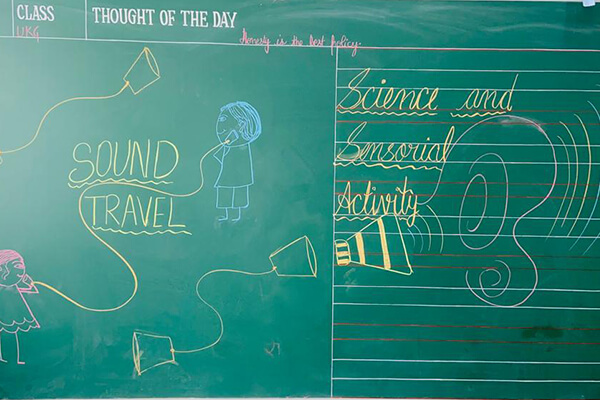 CLASS
UKG
THOUGHT OF THE DAY
Honesty is the best policy.
SOUND
TRAVEL
Science and
Sensorial
Activity